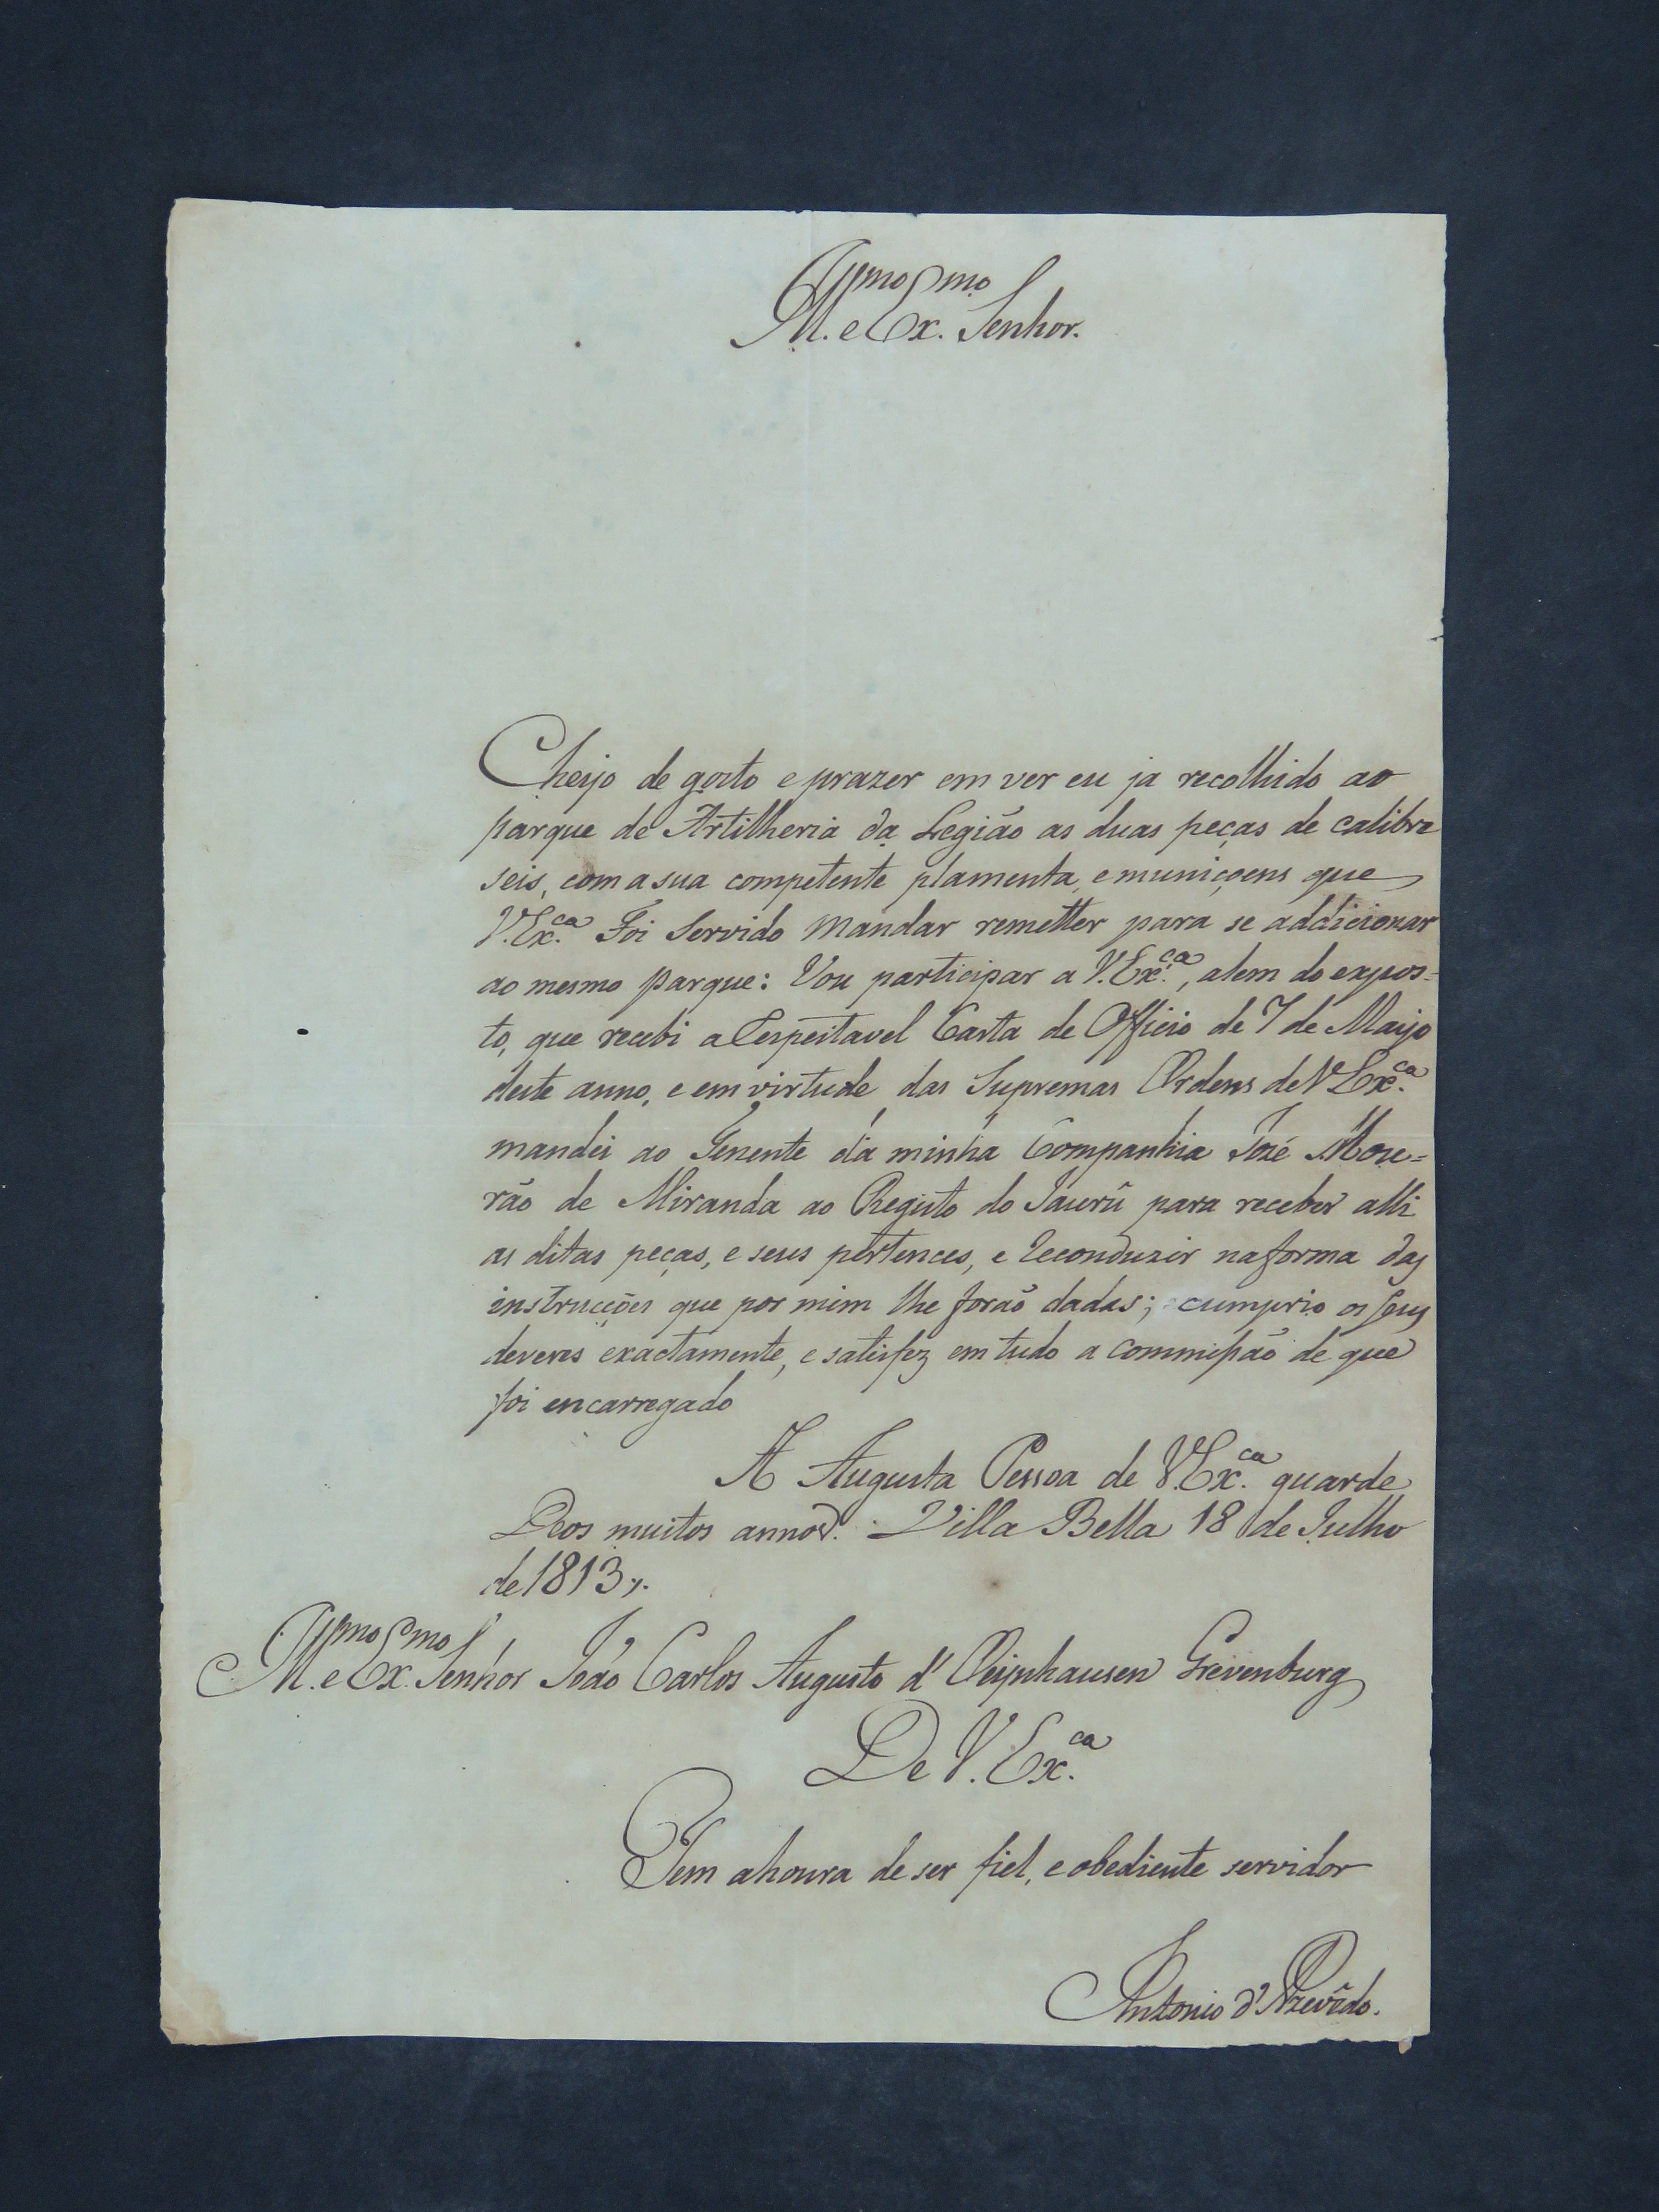 Ill.mo e Ex.mo Senhor.
Cheyo de gosto e prazer em ver eu ja recolhido ao
parque de Artilheria da Legião as duas peças de calibre
seis, com a sua competente plamenta, e municoens que
V. Ex.ca Foi Servido Mandar remetter para se addicionar
ao mesmo parque: Vou participar a V. Ex.ca, alem do expos=
to, que recebi a Respeitavel Carta de Officio de 7 de Mayo
deste anno, e em virtude das Supremas Ordens de V Ex.ca
mandei ao Tenente da minha Companhia José Mou=
rão de Miranda ao Registo do Jaurû para receber alli
as ditas peças, e seus pertences, e Reconduzir na forma das
instrucções que por mim lhe forão dadas; cumprio os seus
deveres exactamente, e satisfez em tudo a commissão de que
foi encarregado
A Augusta Pessoa de V. Ex.ca guarde
Deos muitos annos. Villa Bella 18 de Julho
de 1813.
Ill.mo e Ex.mo Senhor João Carlos Augusto d'Oeynhausen Grevenburg
De V. Ex.ca
Tem a honra de ser fiel, e obediente servidor
Antonio d'Azevêdo.